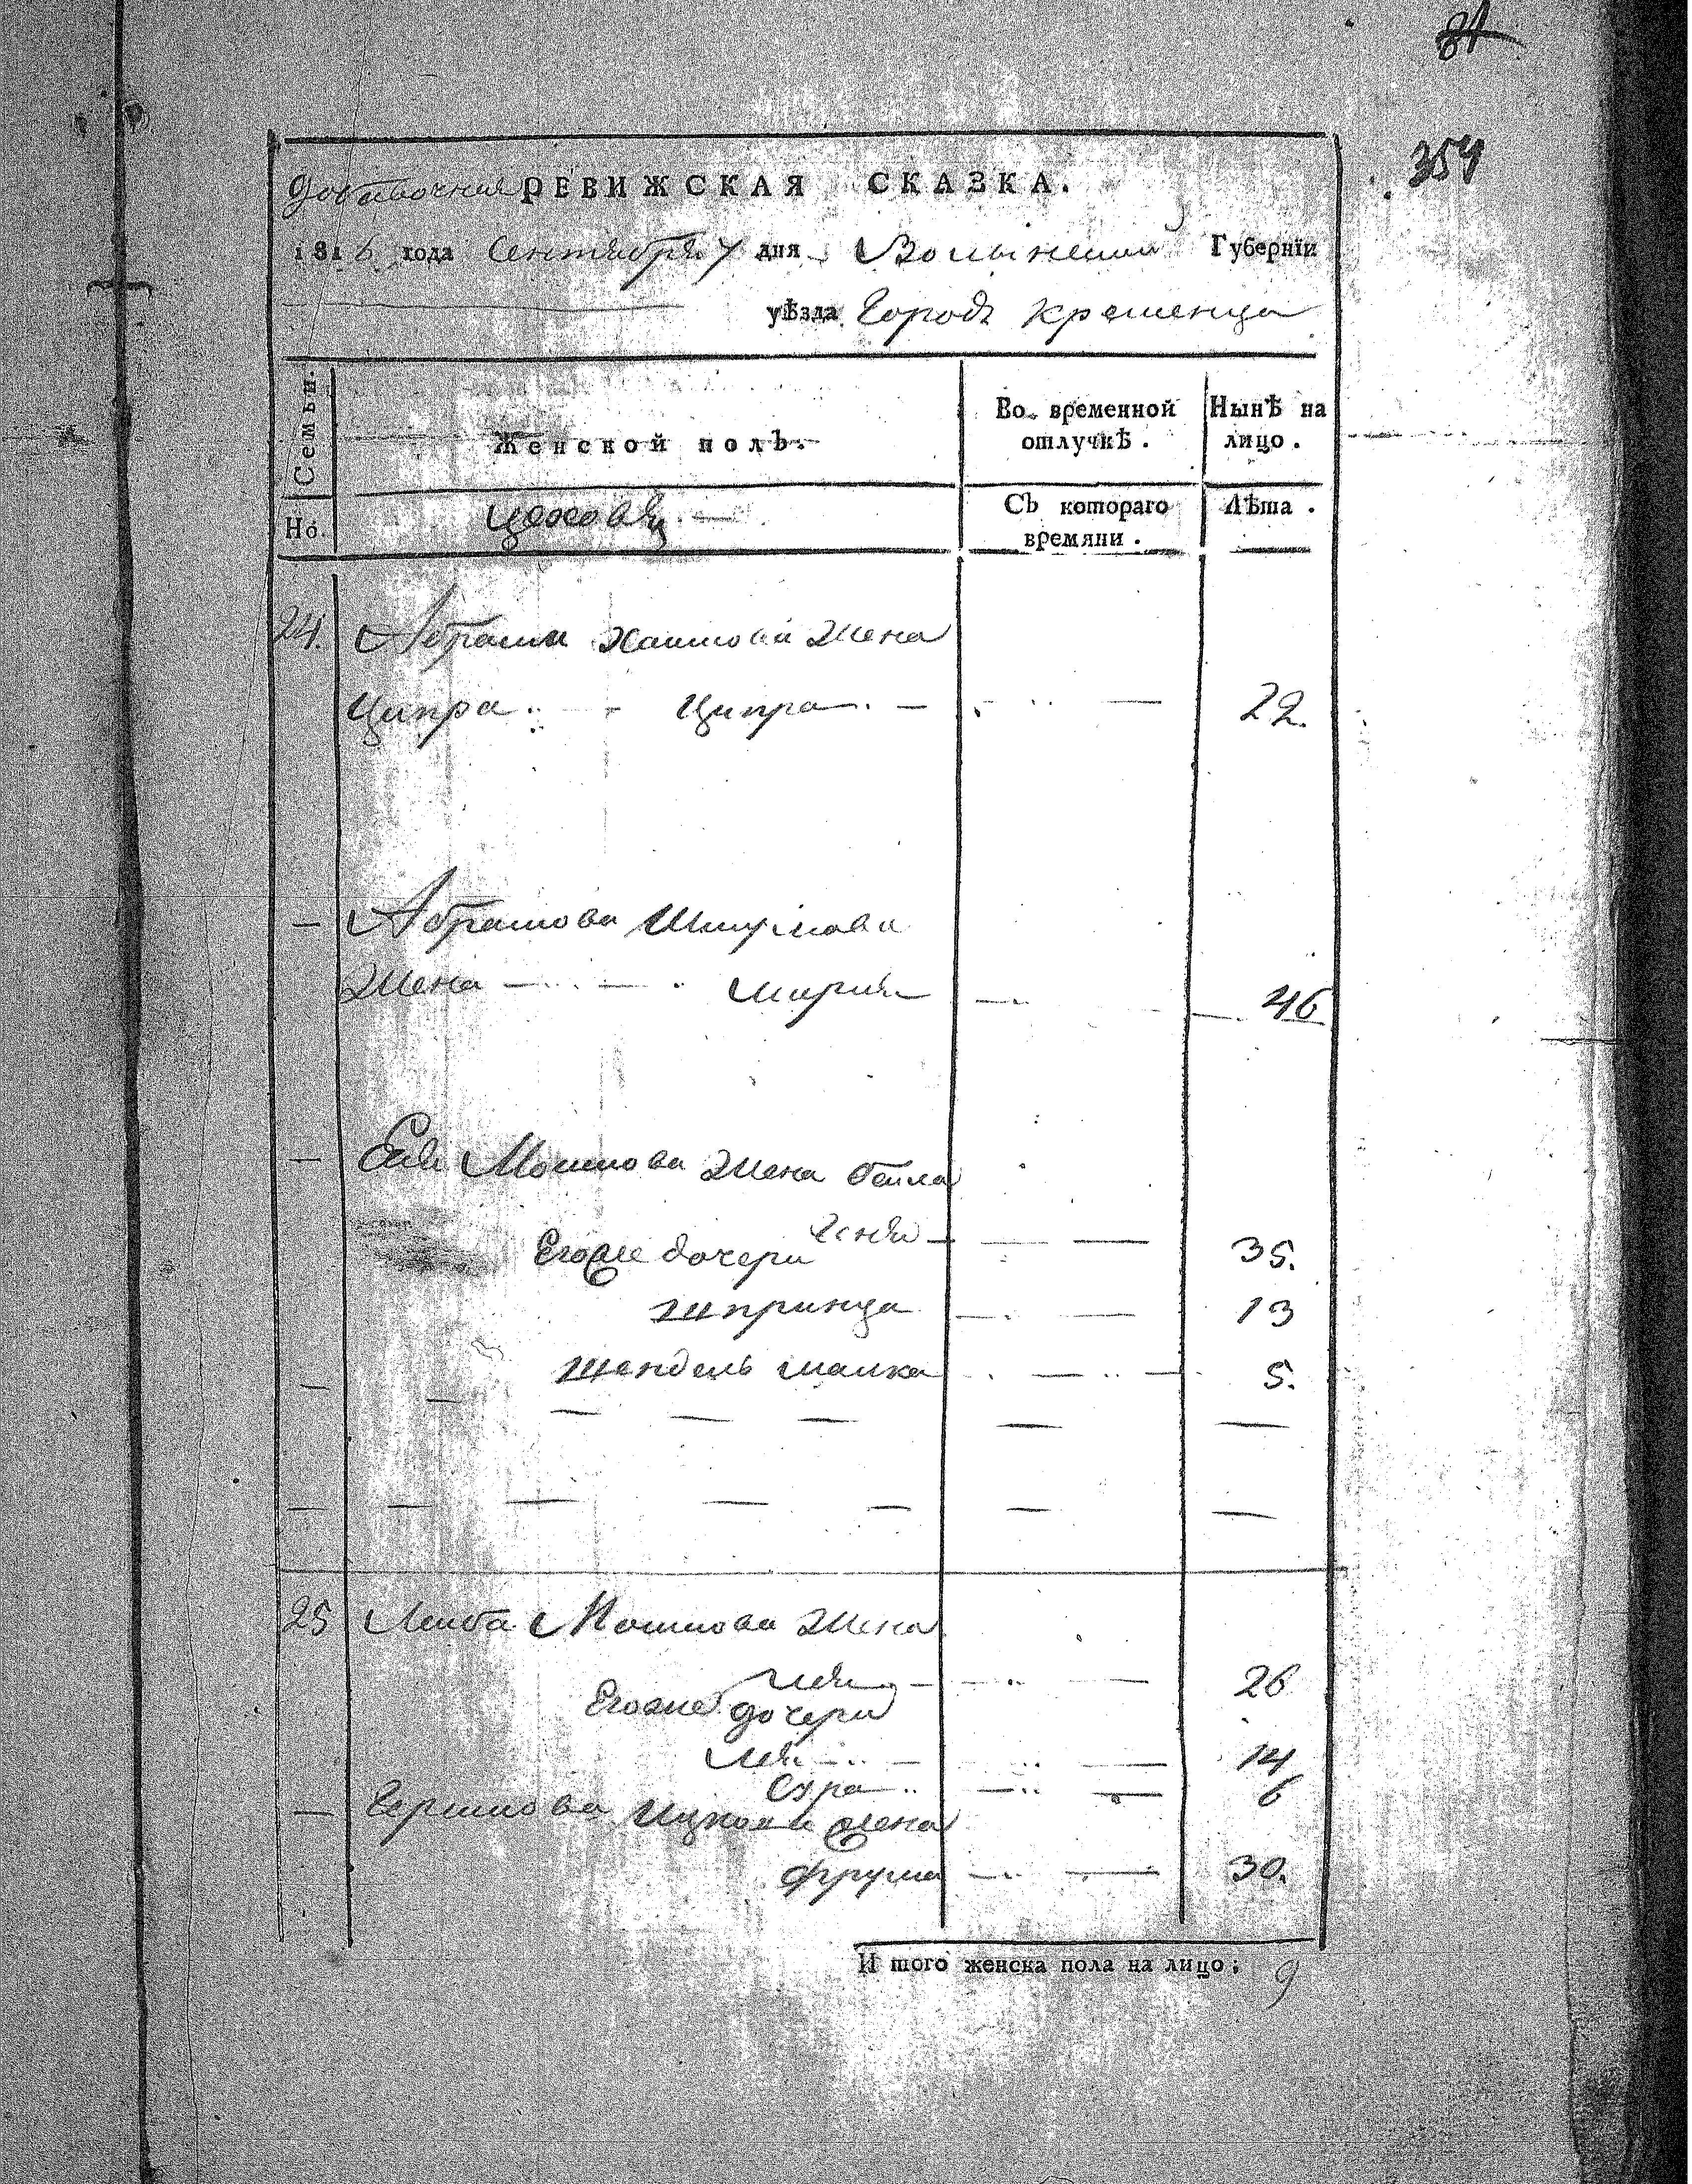 81
354
Добавочная РЕВИЖСКАЯ СКАЗКА.
1816 года Сентября 7 дня Волынской Губернїи
уѣзда Городъ Кременца
Семьи.
Женской полъ.
Во временной отлучкѣ.
Нынѣ на лицо.
No.
Съ котораго времяни.
Лѣта.
24. Абрама жена
Ципра Ципра 22.
Абрамова Шмулова
Жена Мария 46
Мошкова Жена Бейла
Егоже дочери 35.
Шпринца 13
Шендель Малка 5.
25 Лейба Мошкова Жена
Лея 26
Егоже дочери
Лея 14
Сура 6
Гершкова Ицкова жена
Фрума 30.
И того женска пола на лицо; 9